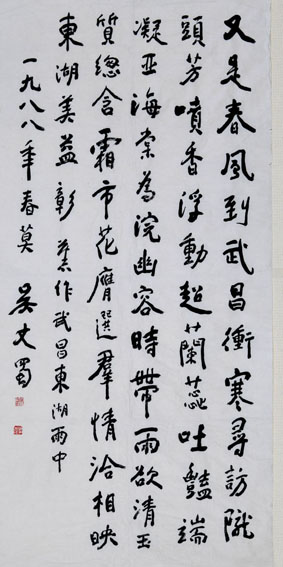 又是春風到武昌衝寒尋訪隴
頭芳噴香浮動超蘭蕊吐豔端
凝亞海棠為浣幽容時帶雨欲清玉
質總含霜市花膺選羣情洽相映
東湖美益彰 舊作武昌東湖雨中
一九八八年春莫 吴丈蜀